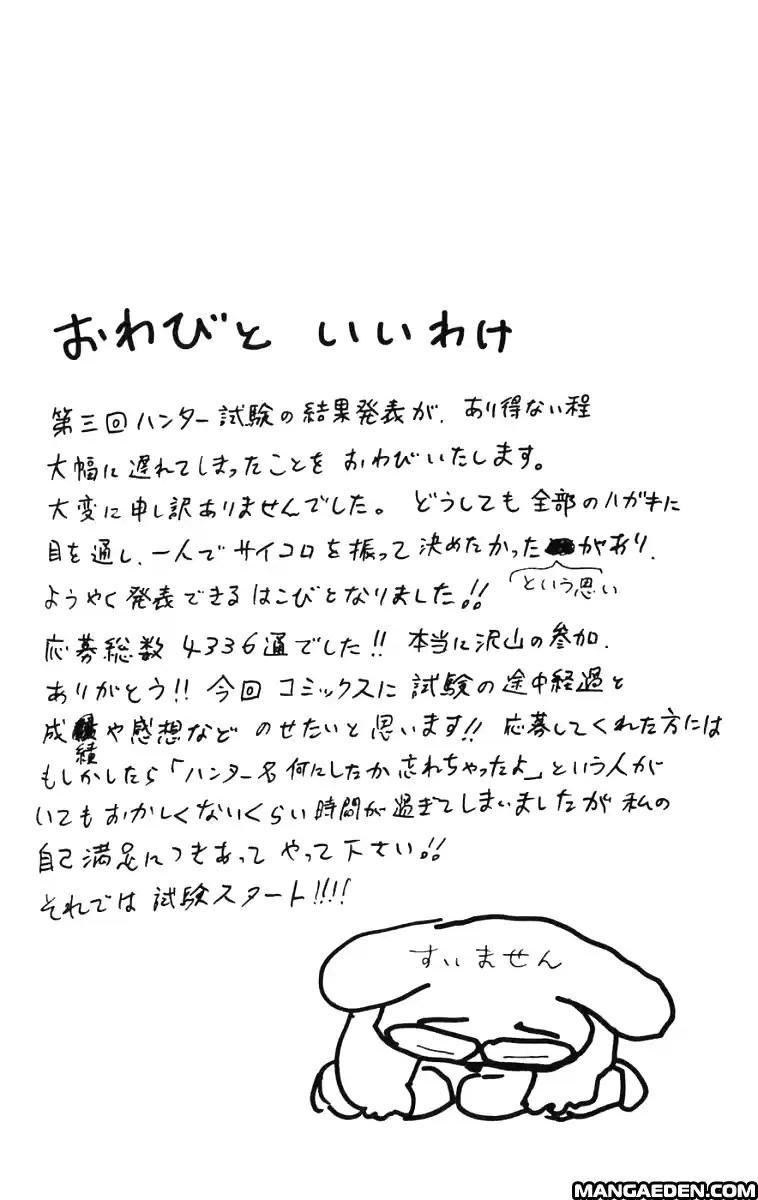 おわびと いいわけ
第三回ハンター試験の結果発表が、あり得ない程
大幅に遅れてしまったことを おわびいたします。
大変に申し訳ありませんでした。 どうしても全部のハガキに
目を通し、一人でサイコロを振って決めたかったがあり、
という思い
ようやく発表できるはこびとなりました!!
応募総数 4336通でした!! 本当に沢山の参加、
ありがとう!! 今回 コミックスに 試験の途中経過と
成績や感想など のせたいと思います!! 応募してくれた方には
もしかしたら「ハンター名 何にしたか 忘れちゃったよ」という人が
いてもおかしくないくらい 時間が過ぎてしまいましたが 私の
自己満足につきあって やって下さい!!
それでは 試験スタート!!!!
すいません
MANGAEDEN.COM